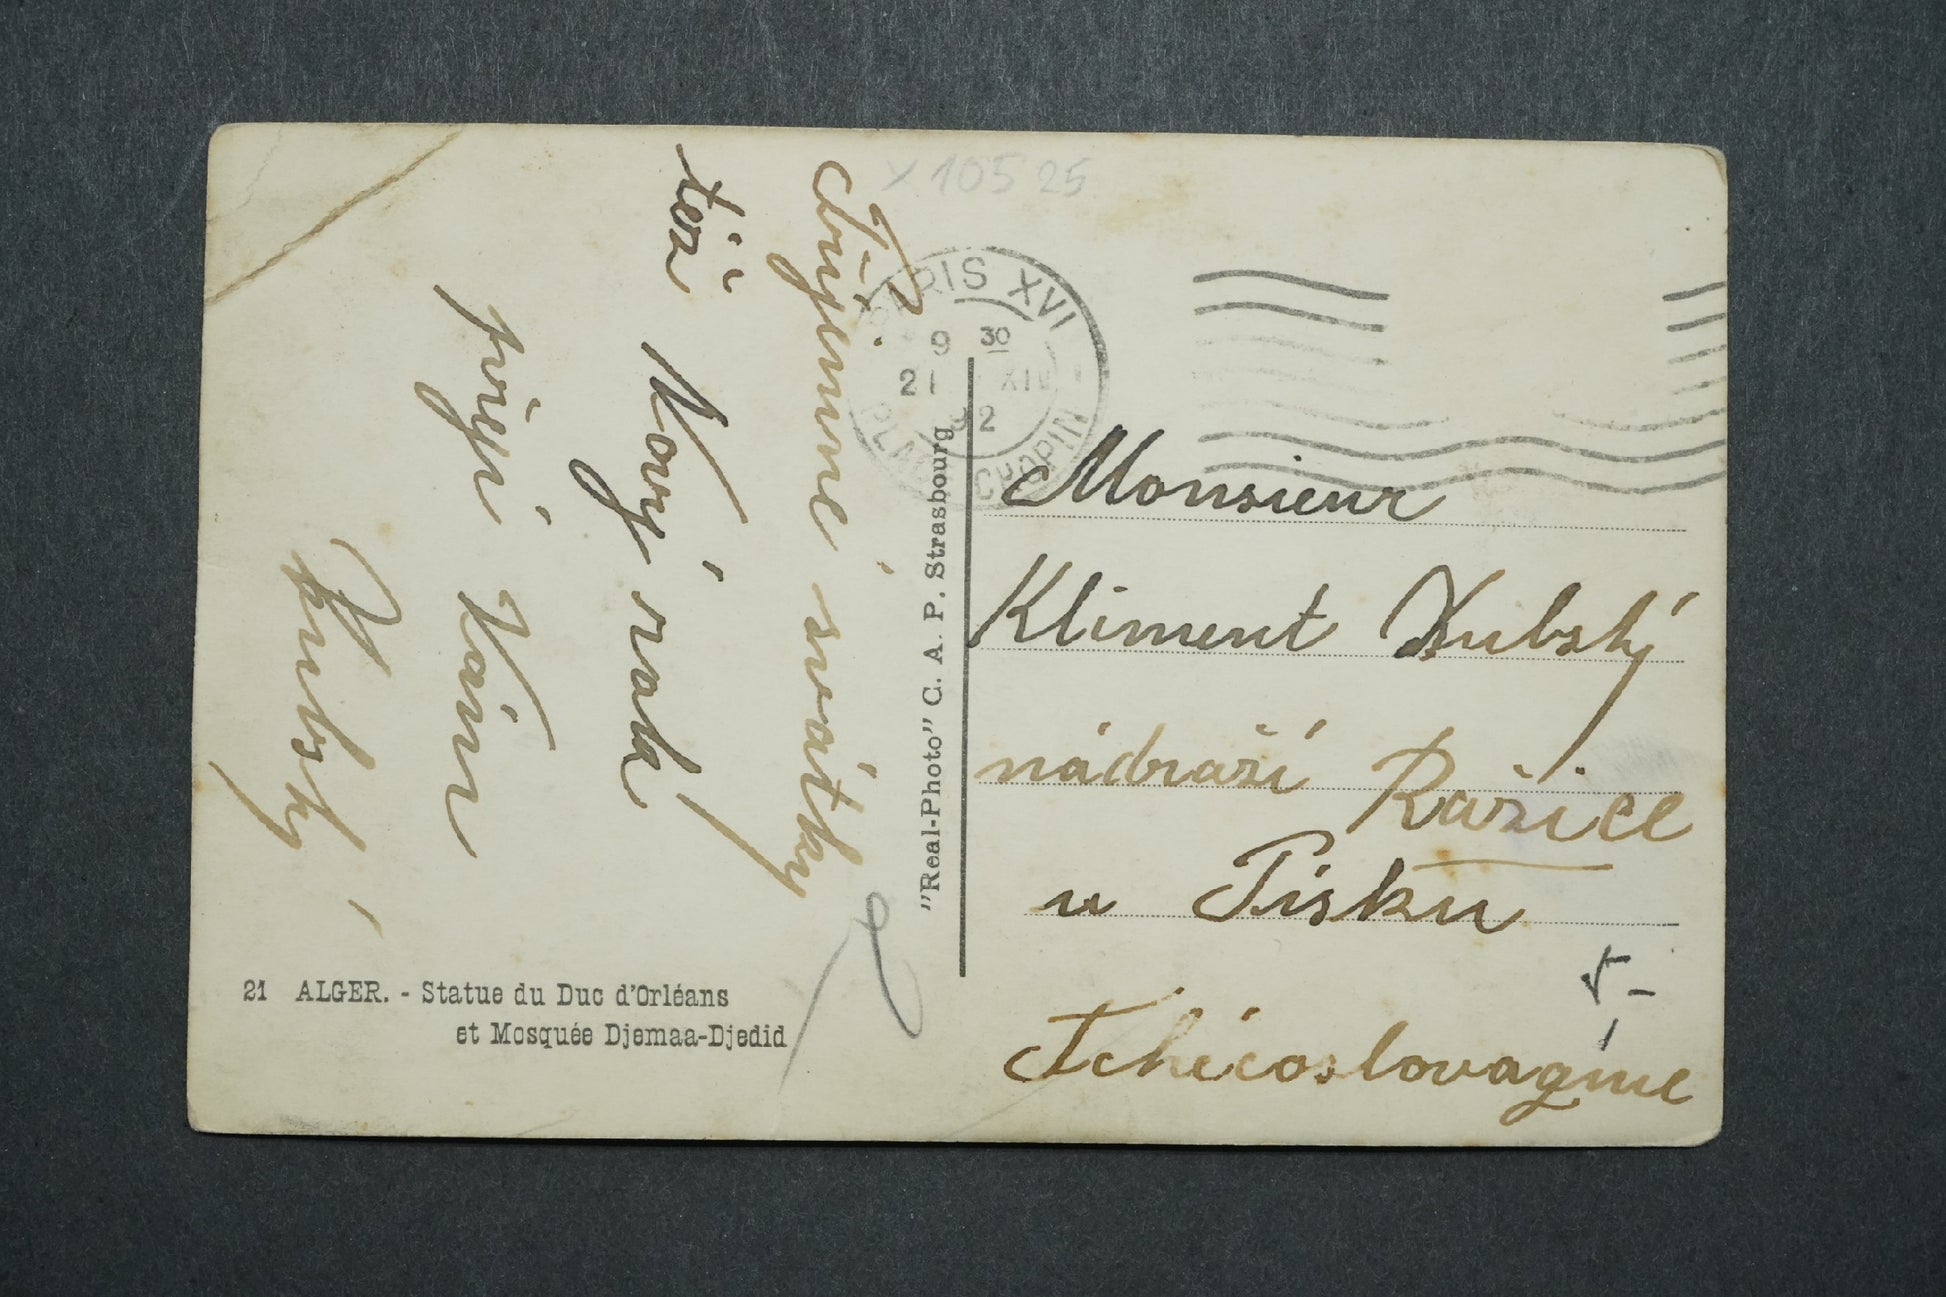 x 105 25
Příjemné svátky
též Nový rok
přeji Vám
Kubský
21 ALGER. - Statue du Duc d'Orléans
et Mosquée Djemaa-Djedid
"Real-Photo" C. A. P. Strasbourg
PARIS XVI
9 30
21 XII
32
PL. CHOPIN
Monsieur
Kliment Kubský
nádraží Ražice
u Písku
Tchécoslovaquie
5-